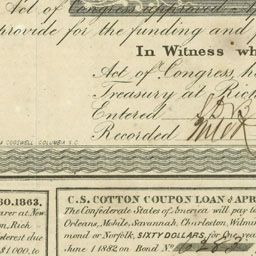 Act of Congress approved
provide for the funding and
In Witness wh
Act of Congress, h
Treasury at Rich
Entered
Recorded
COGSWELL COLUMBIA S.C.
30.1863.
arer at New
on, Rich
terest due
$1.000, to
C.S. COTTON COUPON LOAN of APR
The Confederate States of America will pay to
Orleans, Mobile, Savannah, Charleston, Wilmin
mond or Norfolk, SIXTY DOLLARS, for One year
June 1 1882 on Bond No